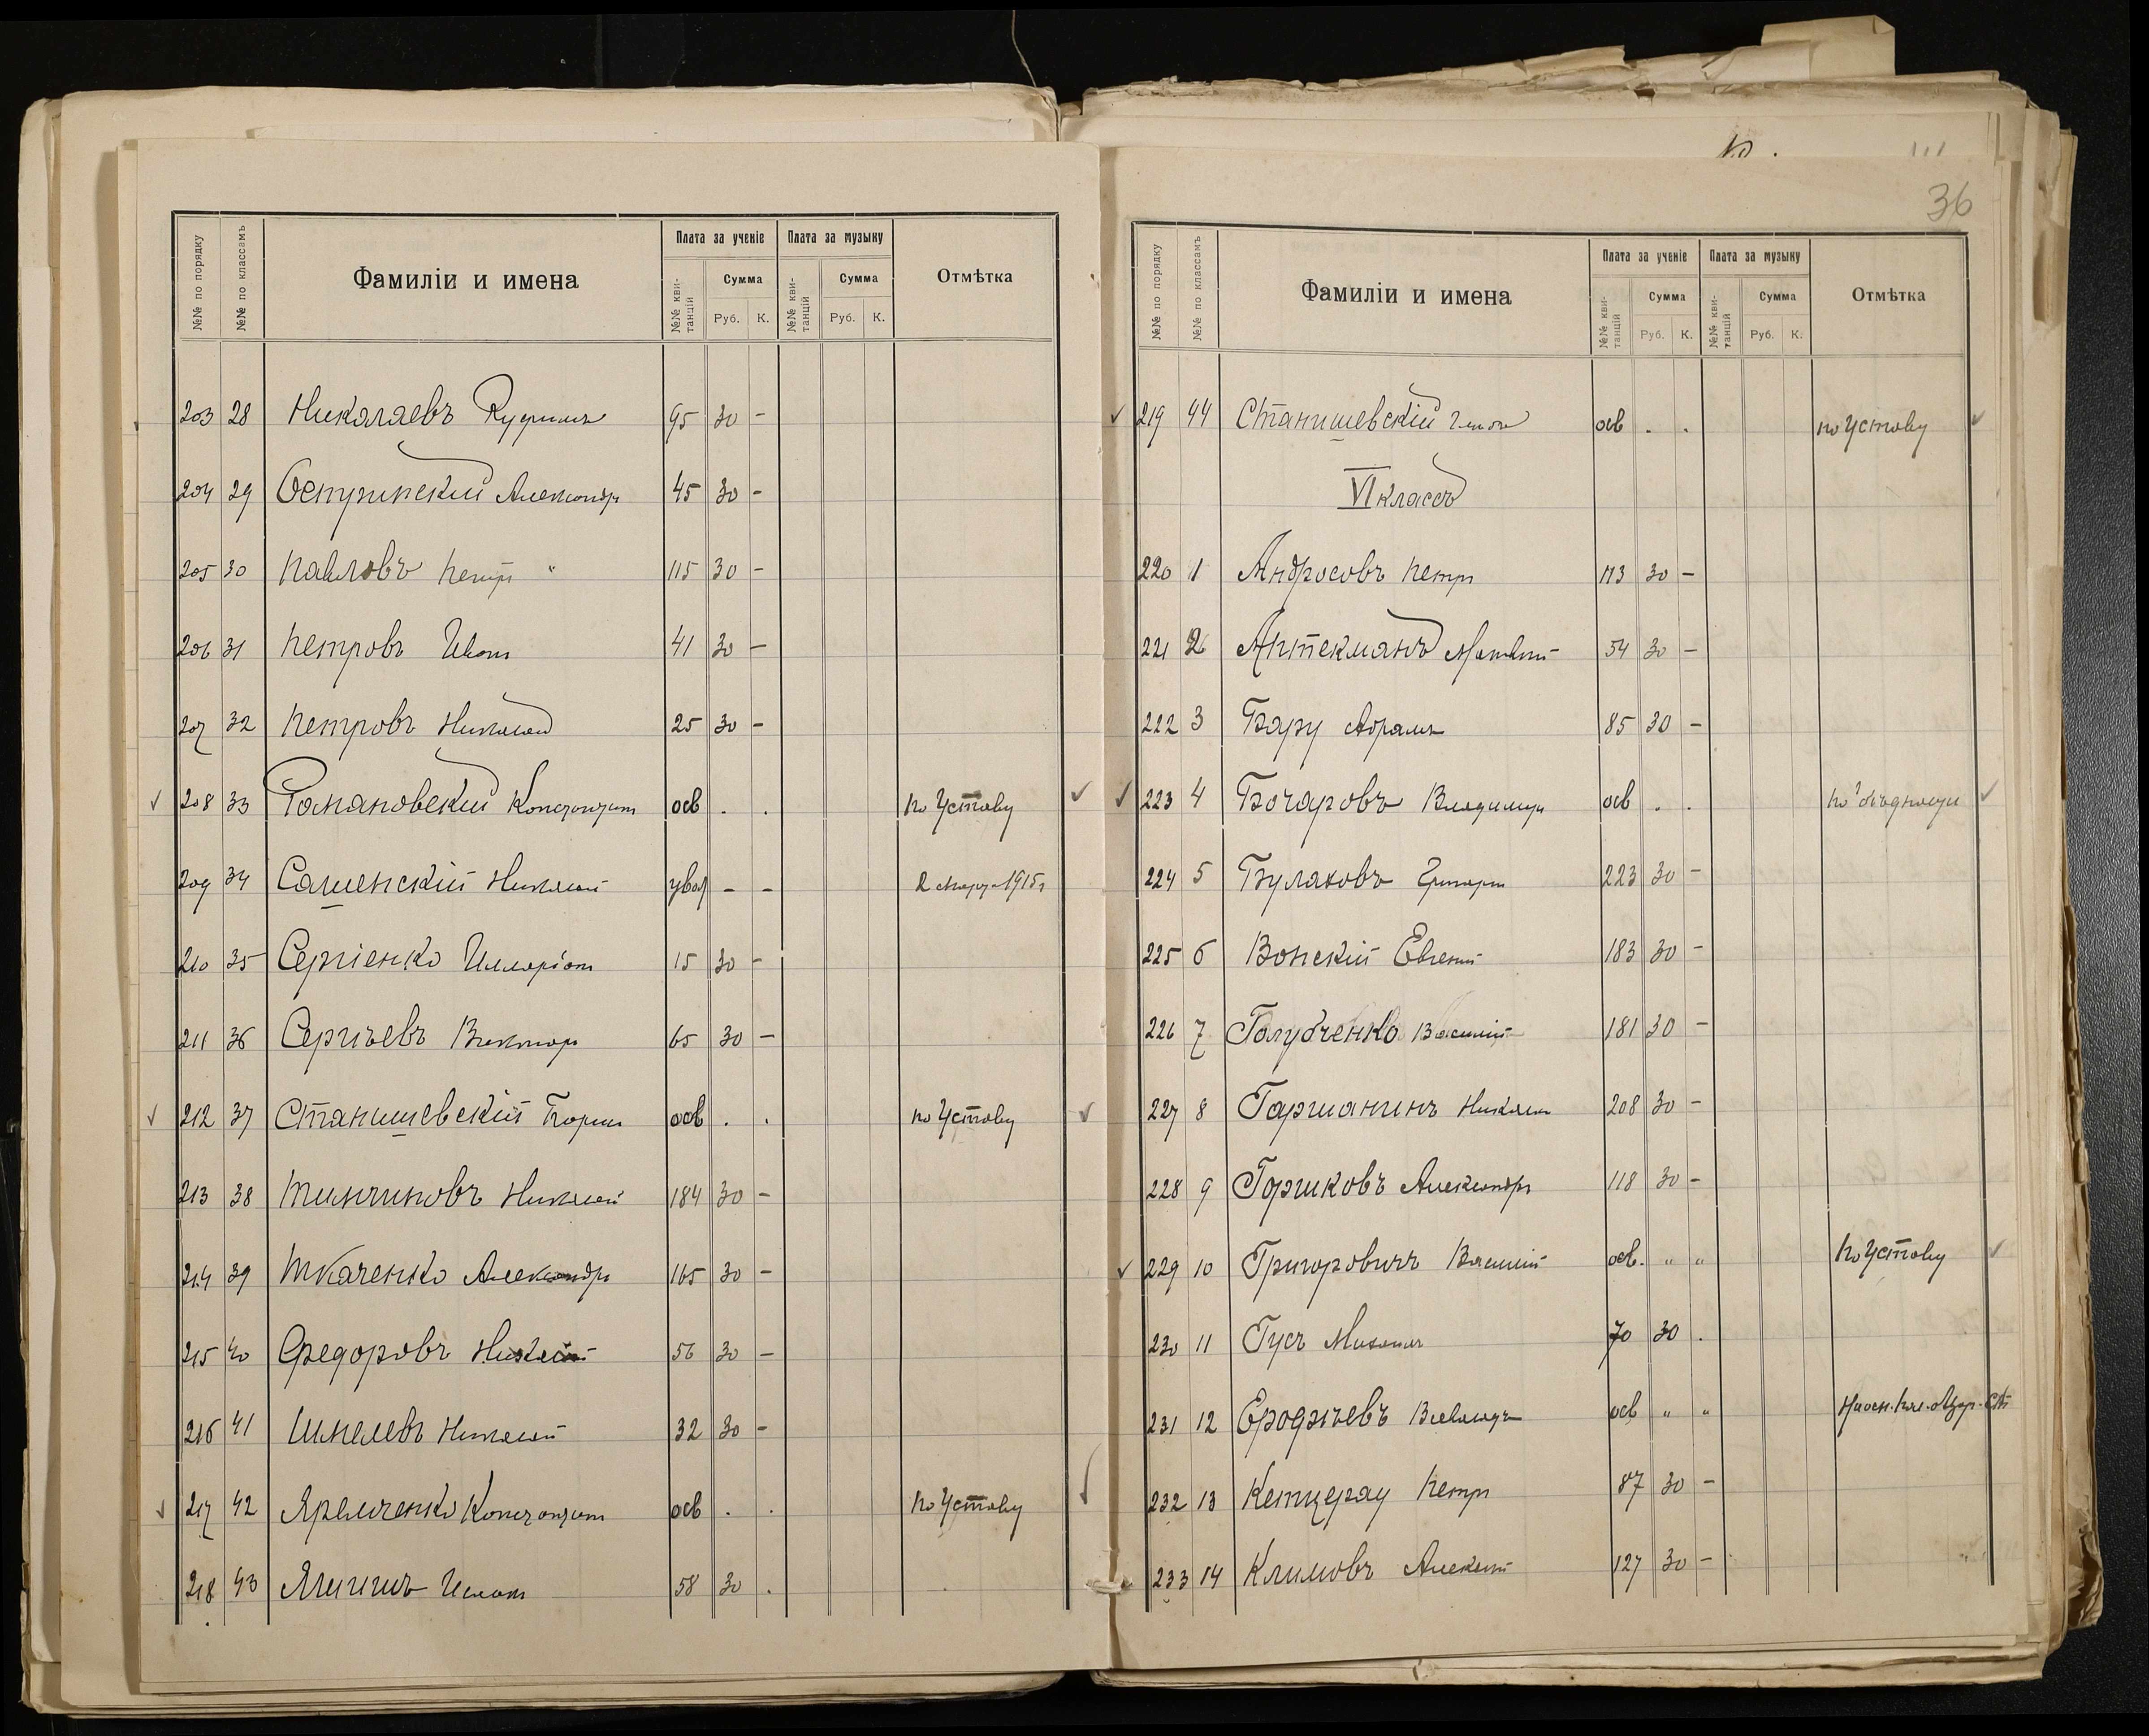 36
№№ по порядку №№ по классамъ Фамиліи и имена Плата за ученіе Плата за музыку Отмѣтка
№№ кви-танцій Сумма №№ кви-танцій Сумма
Руб. К. Руб. К.
203 28 Николаевъ 95 30 -
204 29 Александръ 45 30 -
205 30 Павловъ Петръ 115 30 -
206 31 Петровъ Иванъ 41 30 -
207 32 Петровъ Николай 25 30 -
208 33 Романовскій Константинъ осв . . по Уставу
209 34 Николай увол - - 2 марта 1915 г
210 35 Сергіенко Илларіонъ 15 30 -
211 36 Сергѣевъ Викторъ 65 30 -
212 37 Станишевскій Борисъ осв . . по Уставу
213 38 Тинчиновъ Николай 184 30 -
214 39 Ткаченко Александръ 165 30 -
215 40 Федоровъ Николай 56 30 -
216 41 Шмелевъ Николай 32 30 -
217 42 Яременко Константинъ осв . . по Уставу
218 43 58 30 .
№№ по порядку №№ по классамъ Фамиліи и имена Плата за ученіе Плата за музыку Отмѣтка
№№ кви-танцій Сумма №№ кви-танцій Сумма
Руб. К. Руб. К.
219 44 Станишевскій осв . . по Уставу
VI классъ
220 1 Андросовъ Петръ 113 30 -
221 2 Аптекманъ Матвѣй 54 30 -
222 3 Бару Абрамъ 85 30 -
223 4 Бочаровъ Владимиръ осв . . по бѣдности
224 5 Булаховъ Григорій 223 30 -
225 6 Вонскій Евгеній 183 30 -
226 7 Голубченко Василій 181 30 -
227 8 Гаршанинъ Николай 208 30 -
228 9 Горшковъ Александръ 118 30 -
229 10 Григоровичъ Василій осв. " " По Уставу
230 11 Гусъ Михаилъ 70 30 .
231 12 Ерофѣевъ Всеволодъ осв " "
232 13 Кетцерау Петръ 87 30 -
233 14 Климовъ Алексѣй 127 30 -